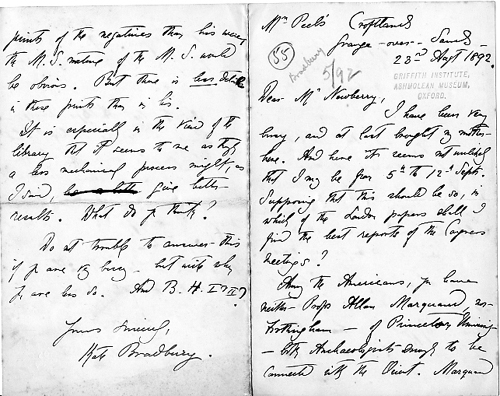 Mrs Peel's Croftlands
Grange-over-Sands
23rd Augst 1892.
55
Bradbury
5/92
GRIFFITH INSTITUTE,
ASHMOLEAN MUSEUM,
OXFORD.
Dear Mr Newberry,
I have been very
busy, and at last brought my mother
here. And here it seems not unlikely
that I may be from 5th to 12th Septr.
Supposing that this should be so, in
which of the London papers shall I
find the best reports of the Congress
meetings?
Among the Americans, you have
neither Profr Allan Marquand, nor
Frothingham — of Princeton University
— both Archaeologists & ought to be
connected with the Orient. Marquand
prints of the negatives than his were,
the M.S. nature of the M.S. would
be obvious. But there is less detail
in these prints than in his.
It is especially in the kind of the
library that it seems to me as though
a less mechanical process might, as
I said, give better
results. What do you think?
Do not trouble to answer this
if you are very busy — but wait when
you are less so. And B. H. I? II?
Yours sincerely,
Kate Bradbury.